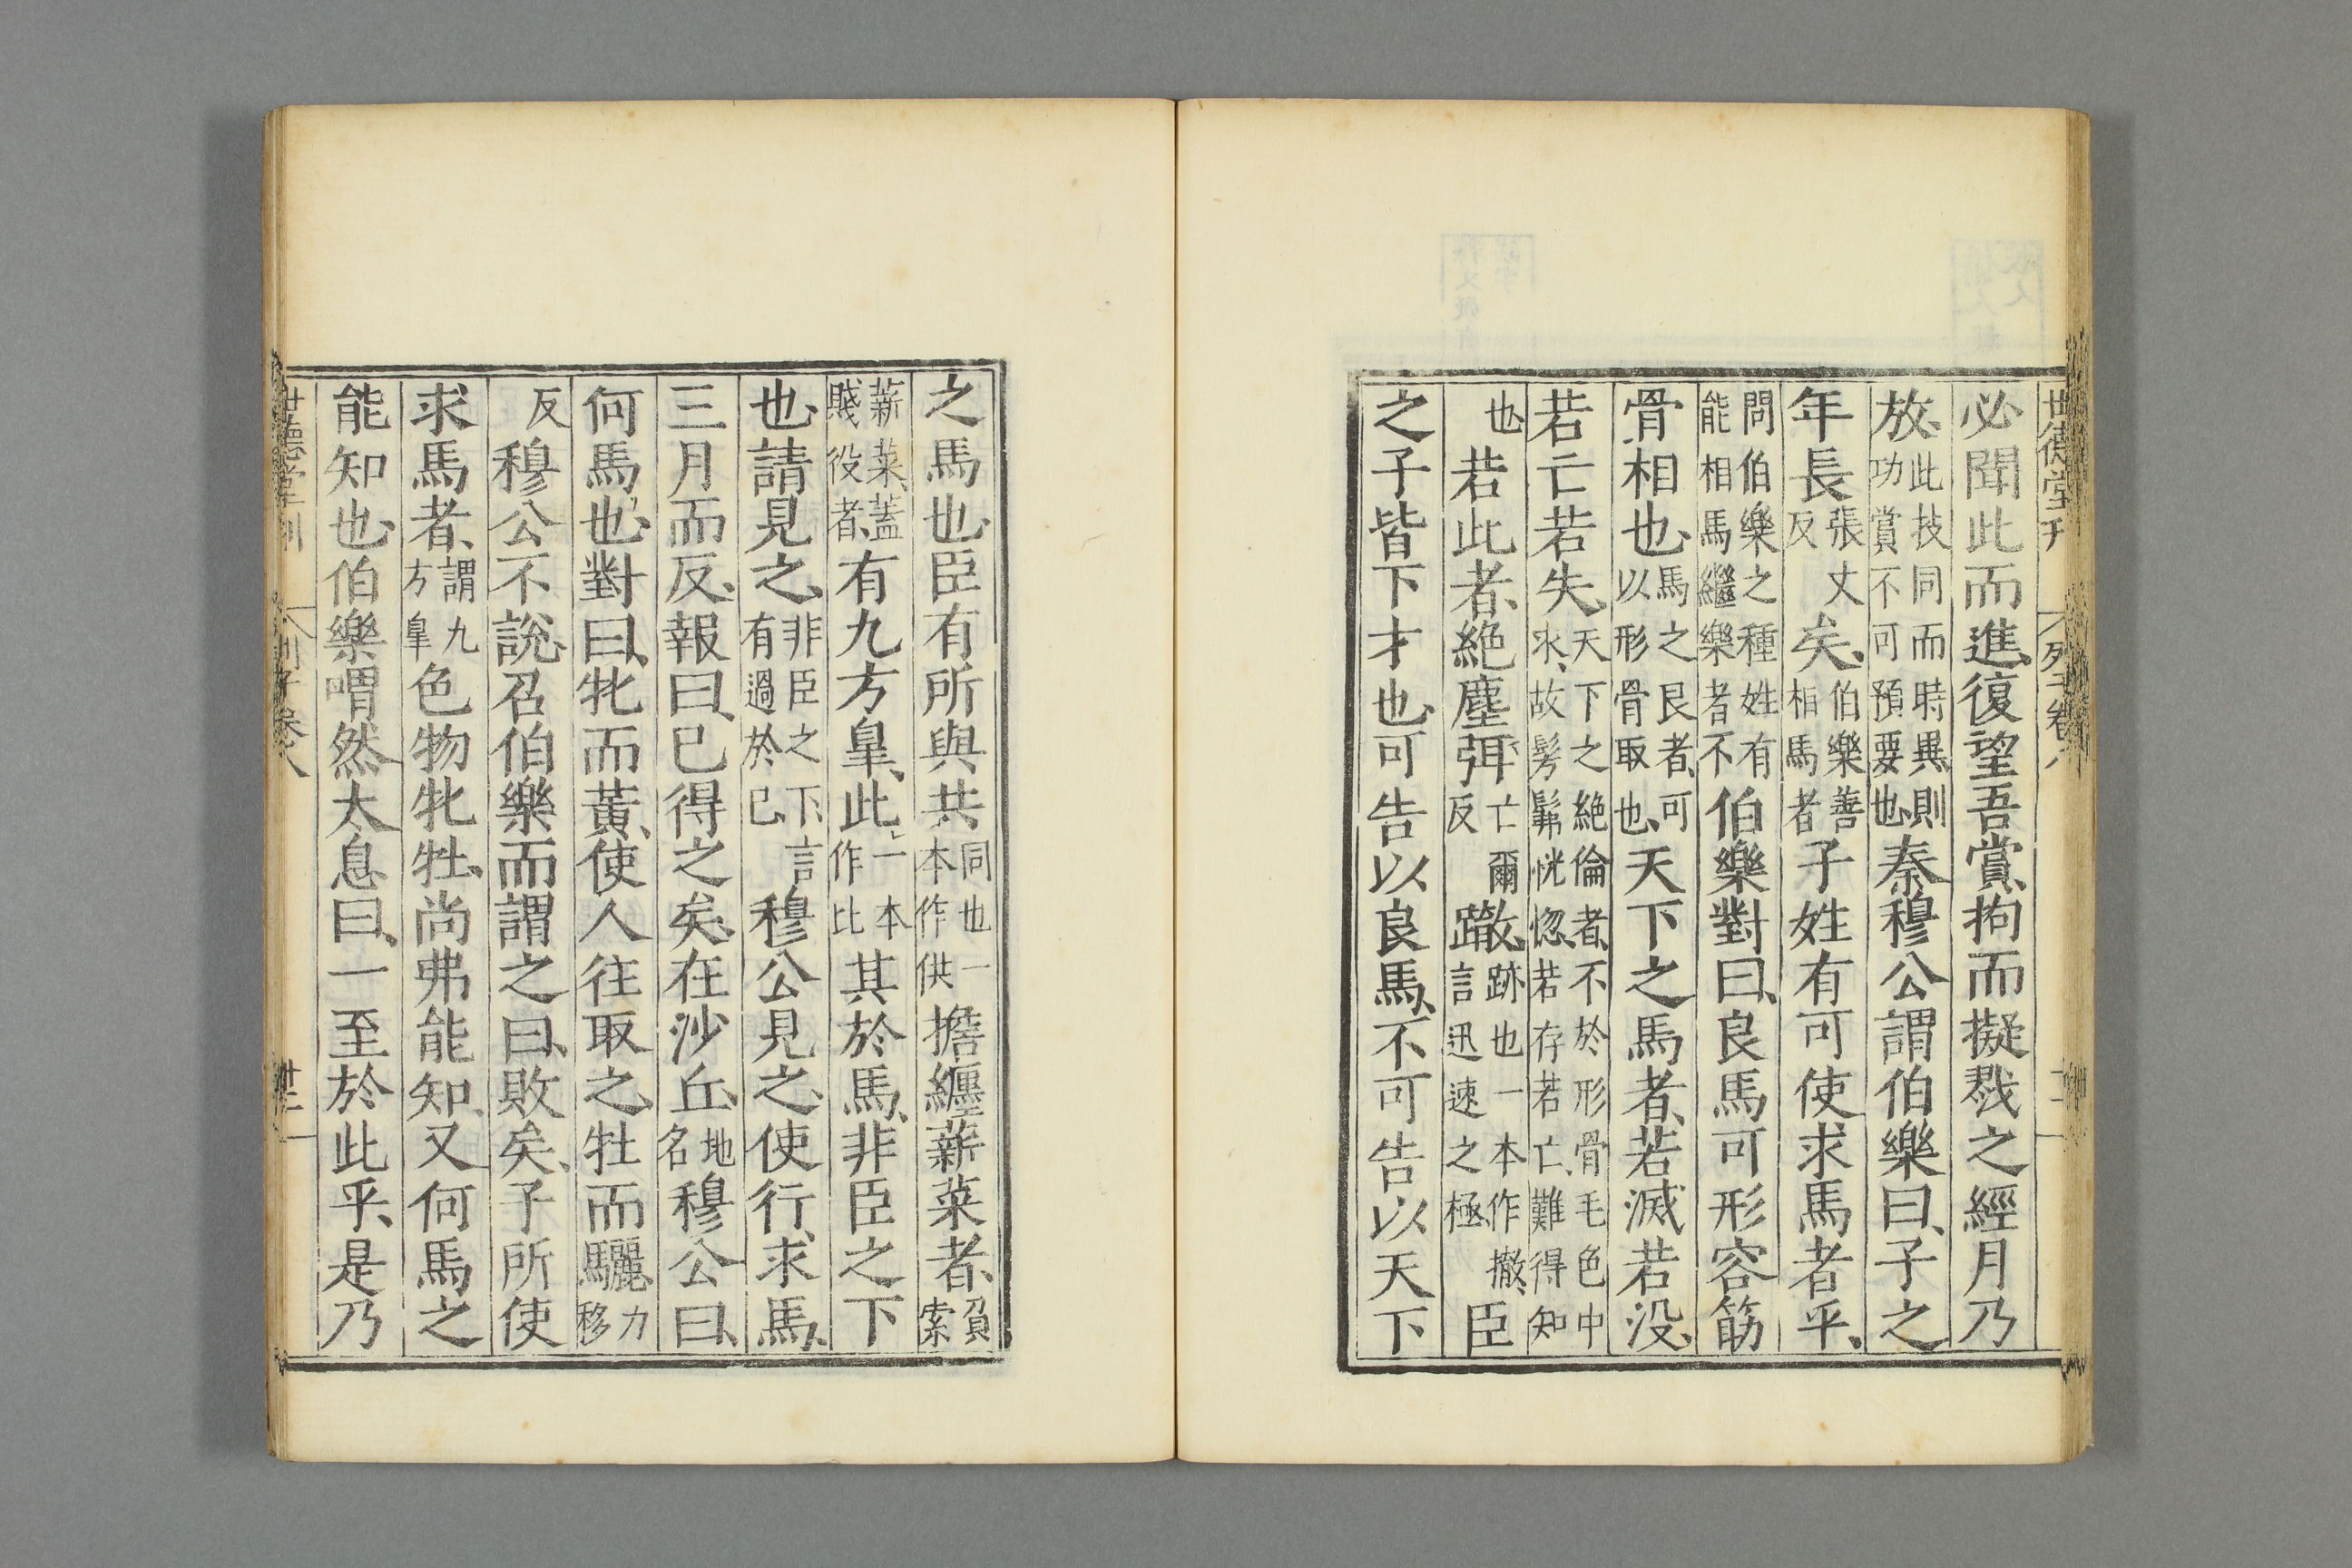 世德堂刊 列子卷八
必聞此而進、復望吾賞、拘而擬戮之、經月乃
放、此技同而時異、則功賞不可預要也、秦穆公謂伯樂曰、子之
年長張丈反矣、伯樂善相馬者子姓有可使求馬者乎、
問伯樂之種姓有能相馬繼樂者不伯樂對曰、良馬可形容筋
骨相也、馬之良者、可以形骨取也、天下之馬者、若滅若沒、
若亡若失、天下之絶倫者、不於形骨毛色中求、故髣髴恍惚、若存若亡、難得知
也、若此者、絶塵弭亡爾反𨅊、跡也一本作撤、言迅速之極、臣
之子皆下才也、可告以良馬、不可告以天下
之馬也、臣有所與共、同也一本作供擔纆薪菜者、負索
薪菜、蓋賤役者、有九方臯、此一本作比其於馬、非臣之下
也、請見之、非臣之下、言有過於己、穆公見之、使行求馬、
三月而反、報曰、已得之矣、在沙丘、地名穆公曰、
何馬也、對曰、牝而黃、使人往取之、牡而驪、力移
反穆公不說、召伯樂而謂之曰、敗矣、子所使
求馬者、謂九方臯色物牝牡、尚弗能知、又何馬之
能知也、伯樂喟然太息曰、一至於此乎、是乃
世德堂刊 列子卷八 廿三